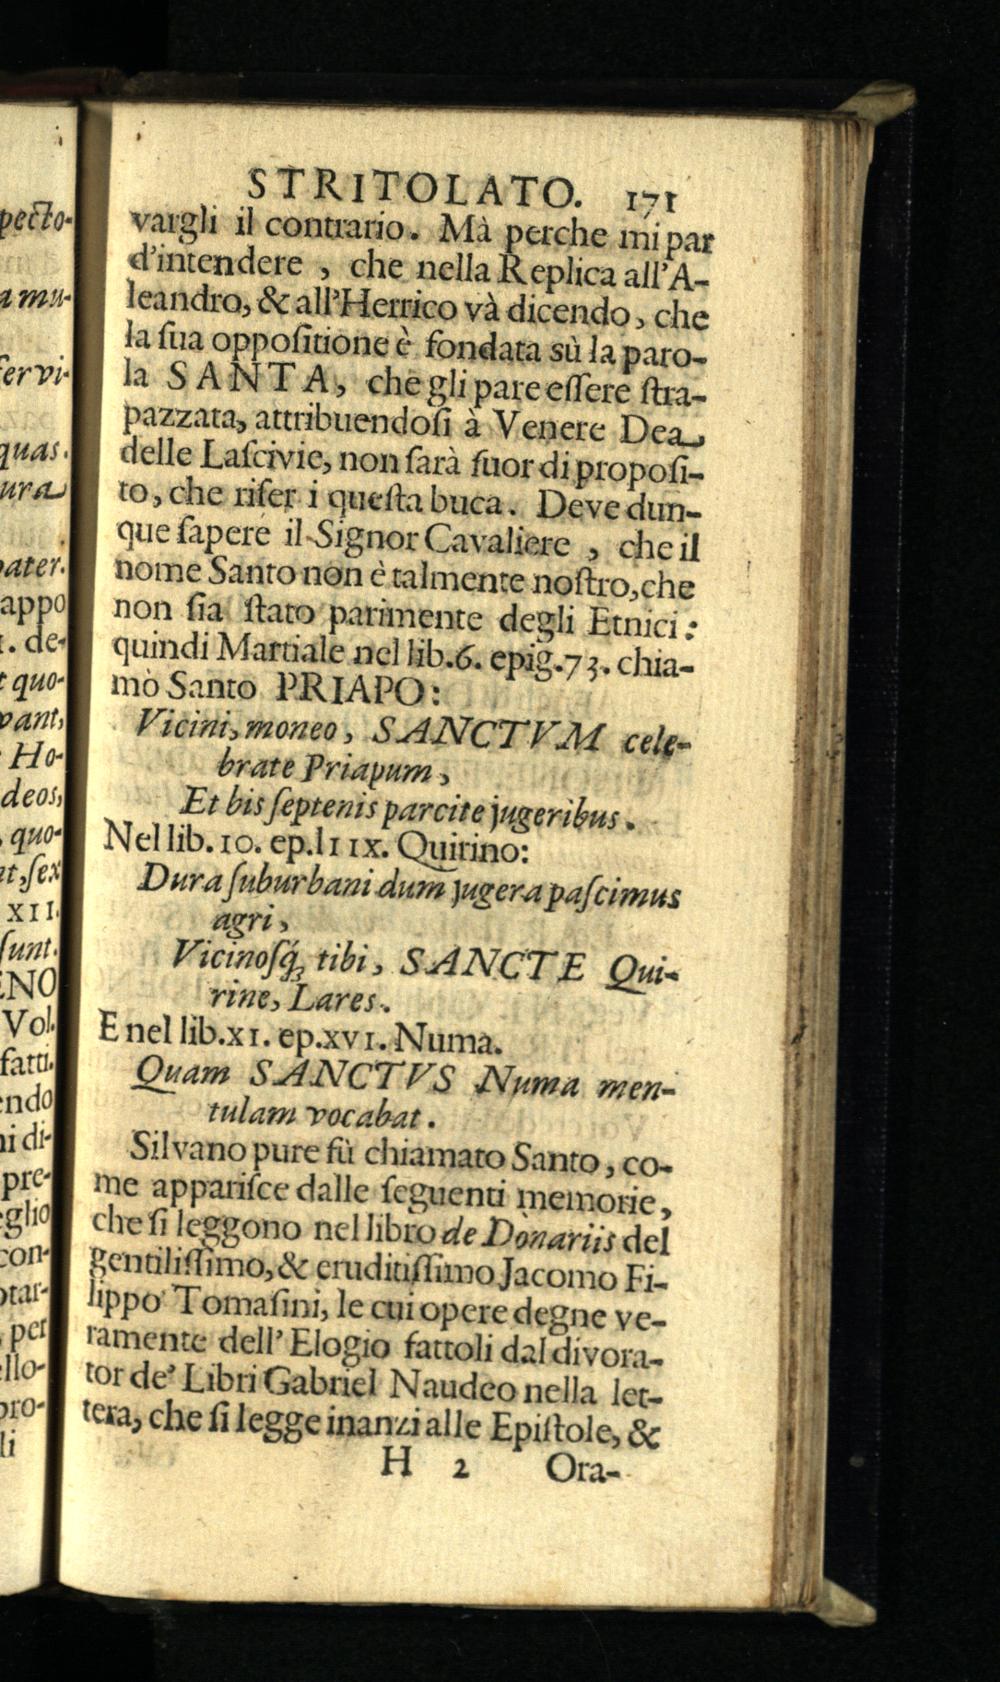 STRITOLATO. 171
vargli il contrario. Mà perche mi par
d'intendere , che nella Replica all'A-
leandro, & all'Herrico và dicendo, che
la ſua oppoſitione è fondata sù la paro-
la SANTA, che gli pare eſſere ſtra-
pazzata, attribuendoſi à Venere Dea
delle Laſcivie, non ſarà fuor di propoſi-
to, che riſer i queſta buca. Deve dun-
que ſapere il Signor Cavaliere , che il
nome Santo non è talmente noſtro, che
non ſia ſtato parimente degli Etnici:
quindi Martiale nel lib.6. epig.73. chia-
mò Santo PRIAPO:
Vicini, moneo, SANCTVM cele-
brate Priapum,
Et bis ſeptenis parcite jugeribus.
Nel lib. 10. ep. lIIX. Quirino:
Dura ſuburbani dum jugera paſcimus
agri,
Vicinoſq́; tibi, SANCTE Qui-
rine, Lares.
E nel lib.XI. ep.XVI. Numa.
Quam SANCTVS Numa men-
tulam vocabat.
Silvano pure fù chiamato Santo, co-
me appariſce dalle ſeguenti memorie,
che ſi leggono nel libro de Donariis del
gentiliſſimo, & eruditiſſimo Jacomo Fi-
lippo Tomaſini, le cui opere degne ve-
ramente dell' Elogio fattoli dal divora-
tor de' Libri Gabriel Naudeo nella let-
tera, che ſi legge inanzi alle Epiſtole, &
H 2 Ora-